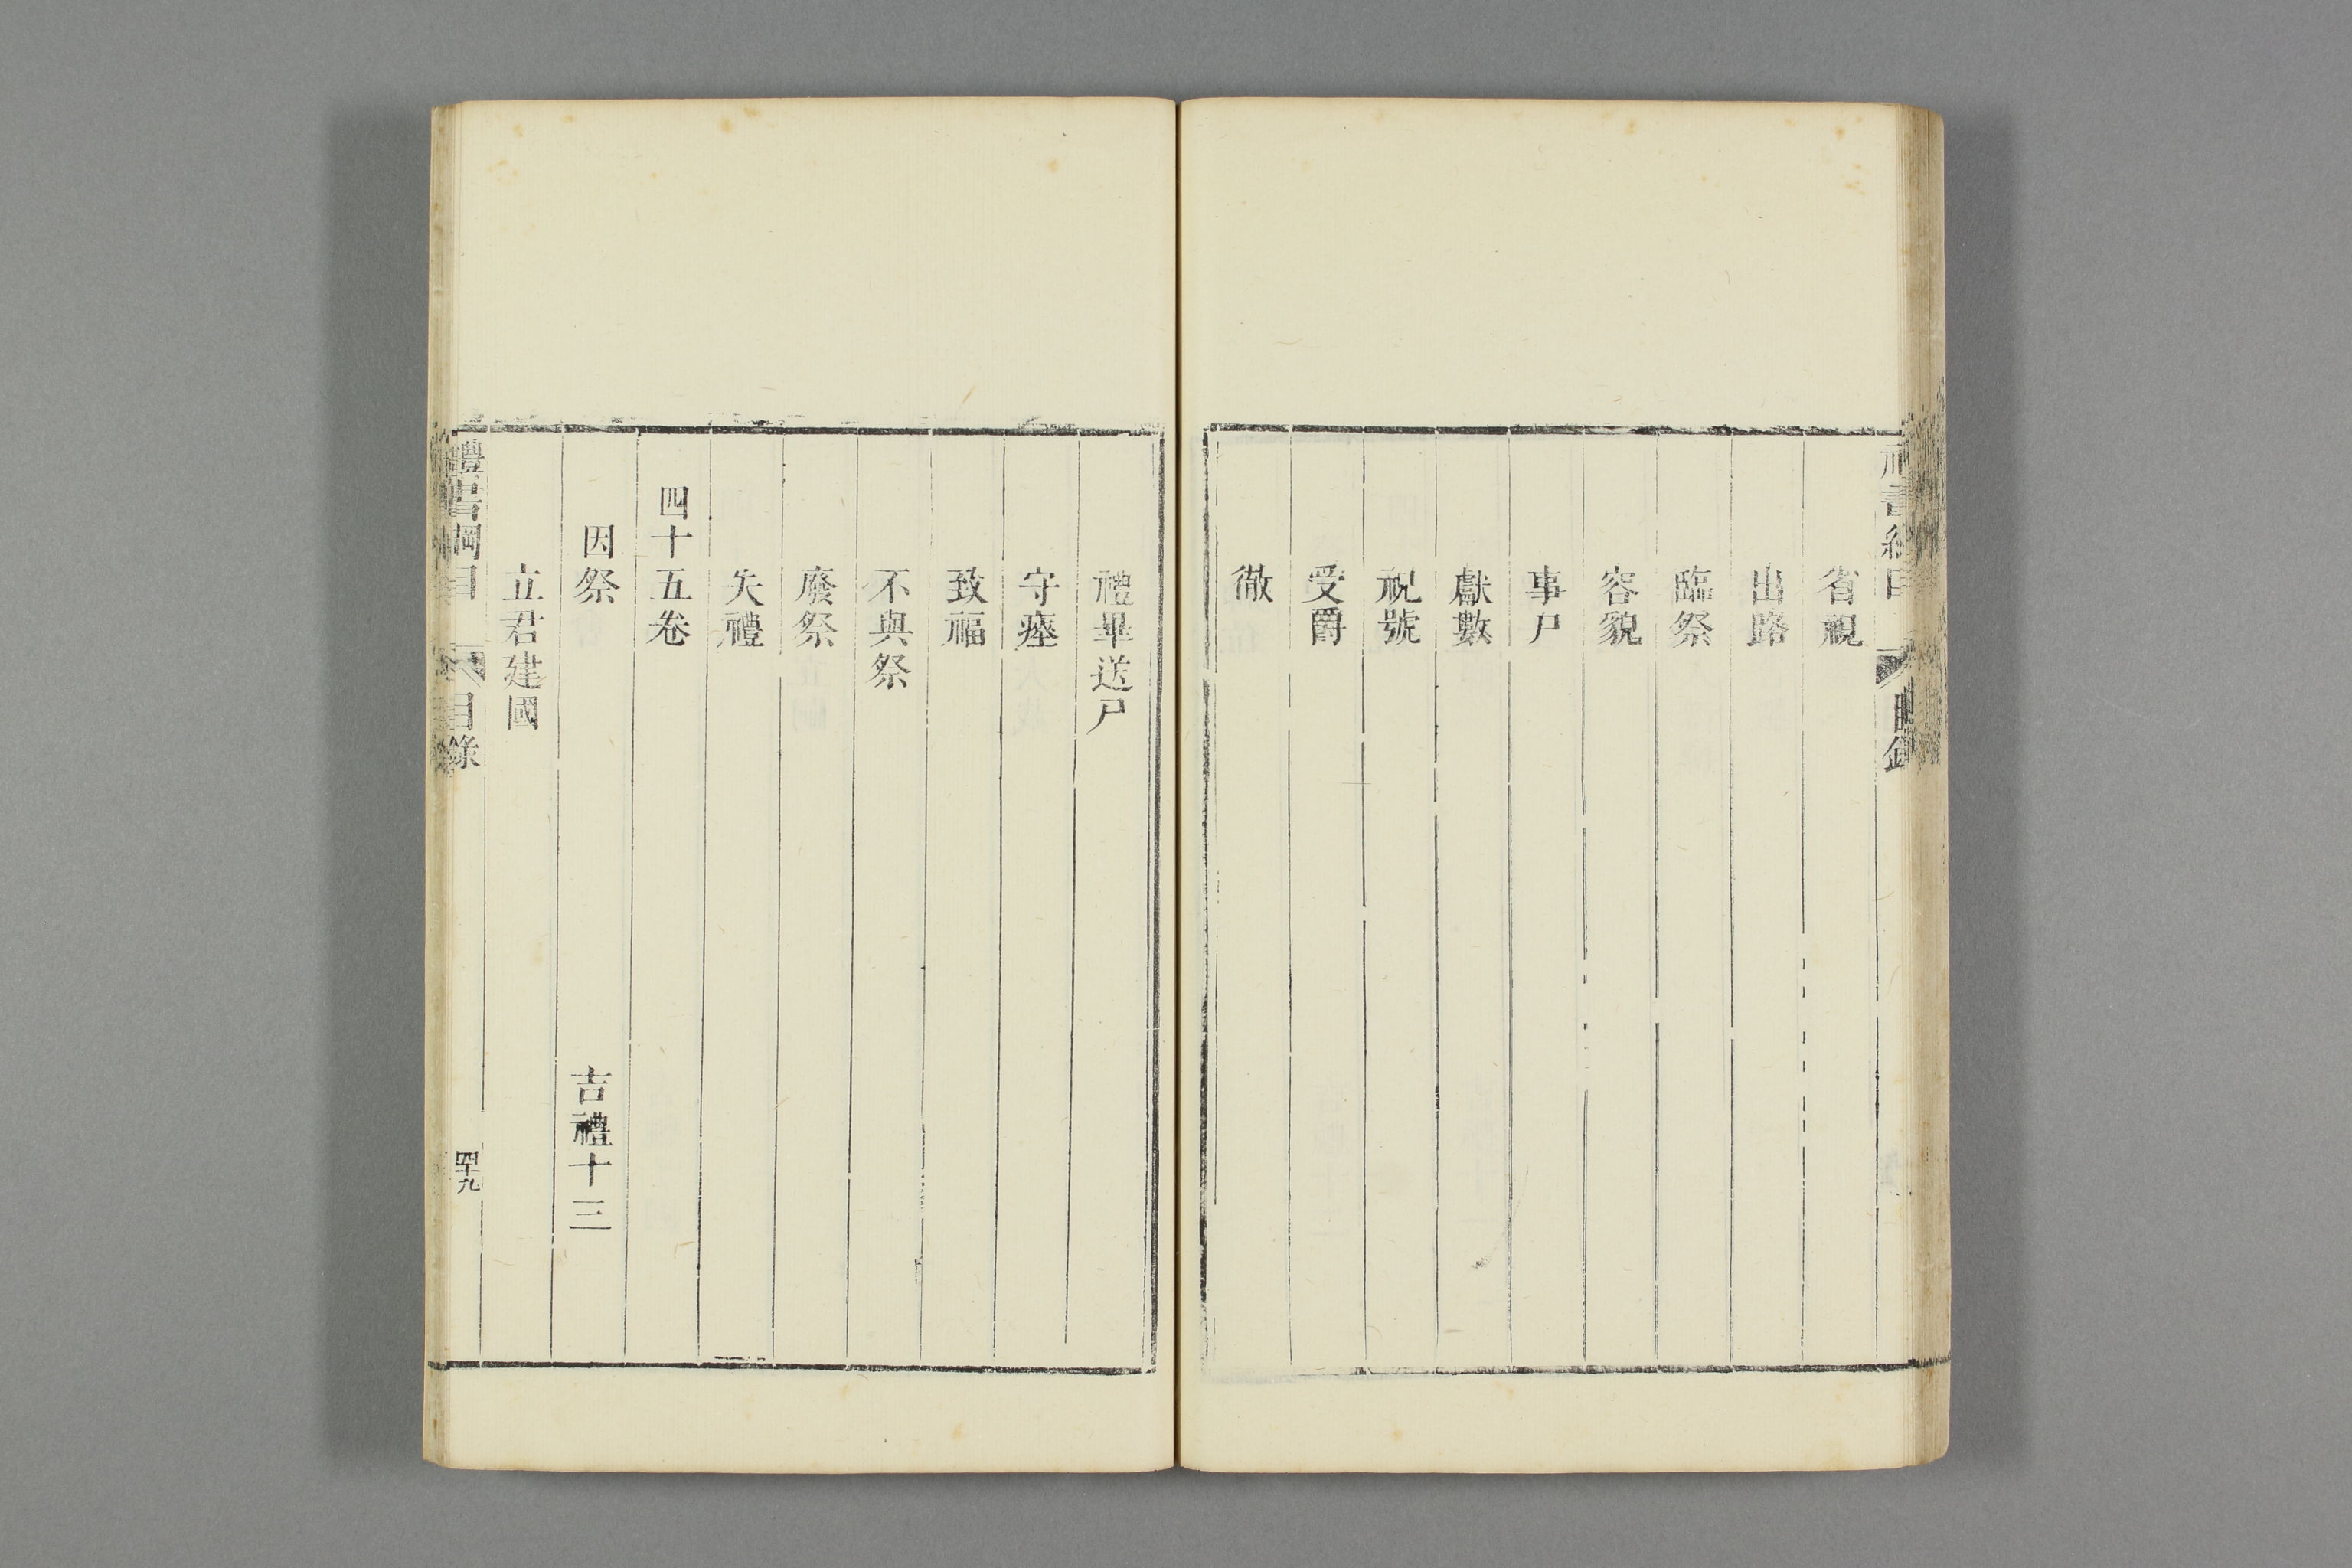 省視
出路
臨祭
容貌
事尸
獻數
祝號
受爵
徹
禮畢送尸
守瘞
致福
不與祭
廢祭
失禮
四十五卷
因祭 吉禮十三
立君建國
禮書綱目 目錄 四十九